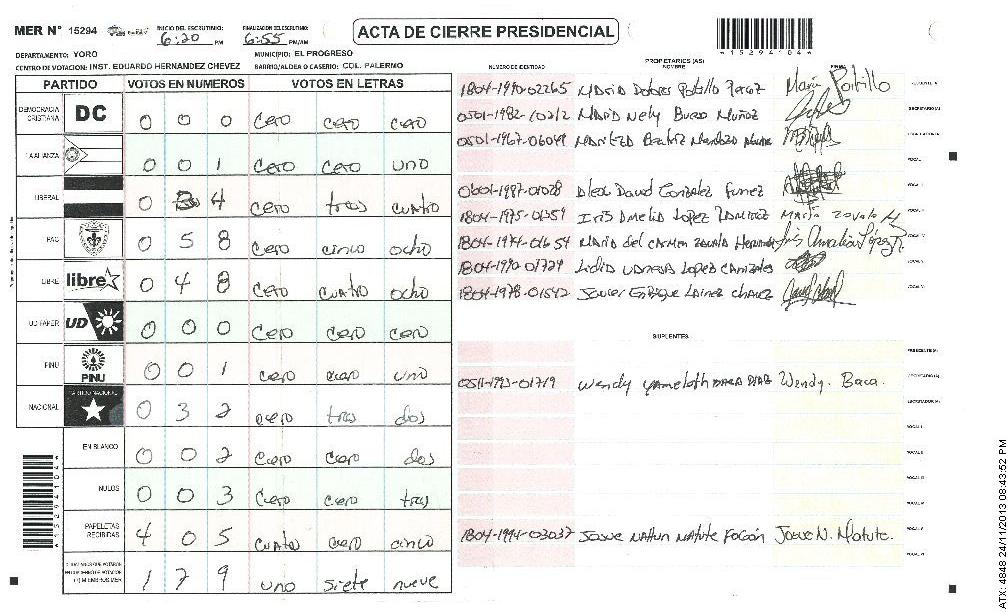 MER N° 15294
INICIO DEL ESCRUTINIO: 6:20 PM
FINALIZACION DEL ESCRUTINIO: 6:55 PM/AM
ACTA DE CIERRE PRESIDENCIAL
*15294104*
DEPARTAMENTO: YORO
MUNICIPIO: EL PROGRESO
CENTRO DE VOTACION: INST. EDUARDO HERNANDEZ CHEVEZ
BARRIO/ALDEA O CASERIO: COL. PALERMO
PARTIDO VOTOS EN NUMEROS VOTOS EN LETRAS
DEMOCRACIA CRISTIANA DC 0 0 0 cero cero cero
LA ALIANZA 0 0 1 cero cero uno
LIBERAL 0 3 4 cero tres cuatro
PAC 0 5 8 cero cinco ocho
LIBRE libre 0 4 8 cero cuatro ocho
UD FAPER UD 0 0 0 cero cero cero
PINU PINU 0 0 1 cero cero uno
NACIONAL PARTIDO NACIONAL 0 3 2 cero tres dos
EN BLANCO 0 0 2 cero cero dos
NULOS 0 0 3 cero cero tres
PAPELETAS RECIBIDAS 4 0 5 cuatro cero cinco
(+) MIEMBROS MER 1 7 9 uno siete nueve
PROPIETARIOS (AS)
NUMERO DE IDENTIDAD NOMBRE FIRMA
1804-1990-02265 Maria Dolores Portillo Perez Maria Portillo
0501-1982-10212 Maria Nely Bueso Muñoz
0501-1967-06049 Maritza Beatriz Mendoza
0601-1987-01028 Alex David Gonzalez Funez
1804-1975-01359 Iris Amelia Lopez Ramirez Maria Zavala H
1804-1974-01654 Maria del Carmen Zavala Iris Amelia López R.
1804-1990-01729 Lidia Vanessa Lopez Canizales
1804-1978-01542 Javier Enrique Lainez Chavez
SUPLENTES
0511-1993-01719 Wendy Yameloth Baca Diaz Wendy. Baca.
1804-1994-03037 Josue Nahun Matute Josue N. Matute.
ATX: 4848 24/11/2013 08:43:52 PM